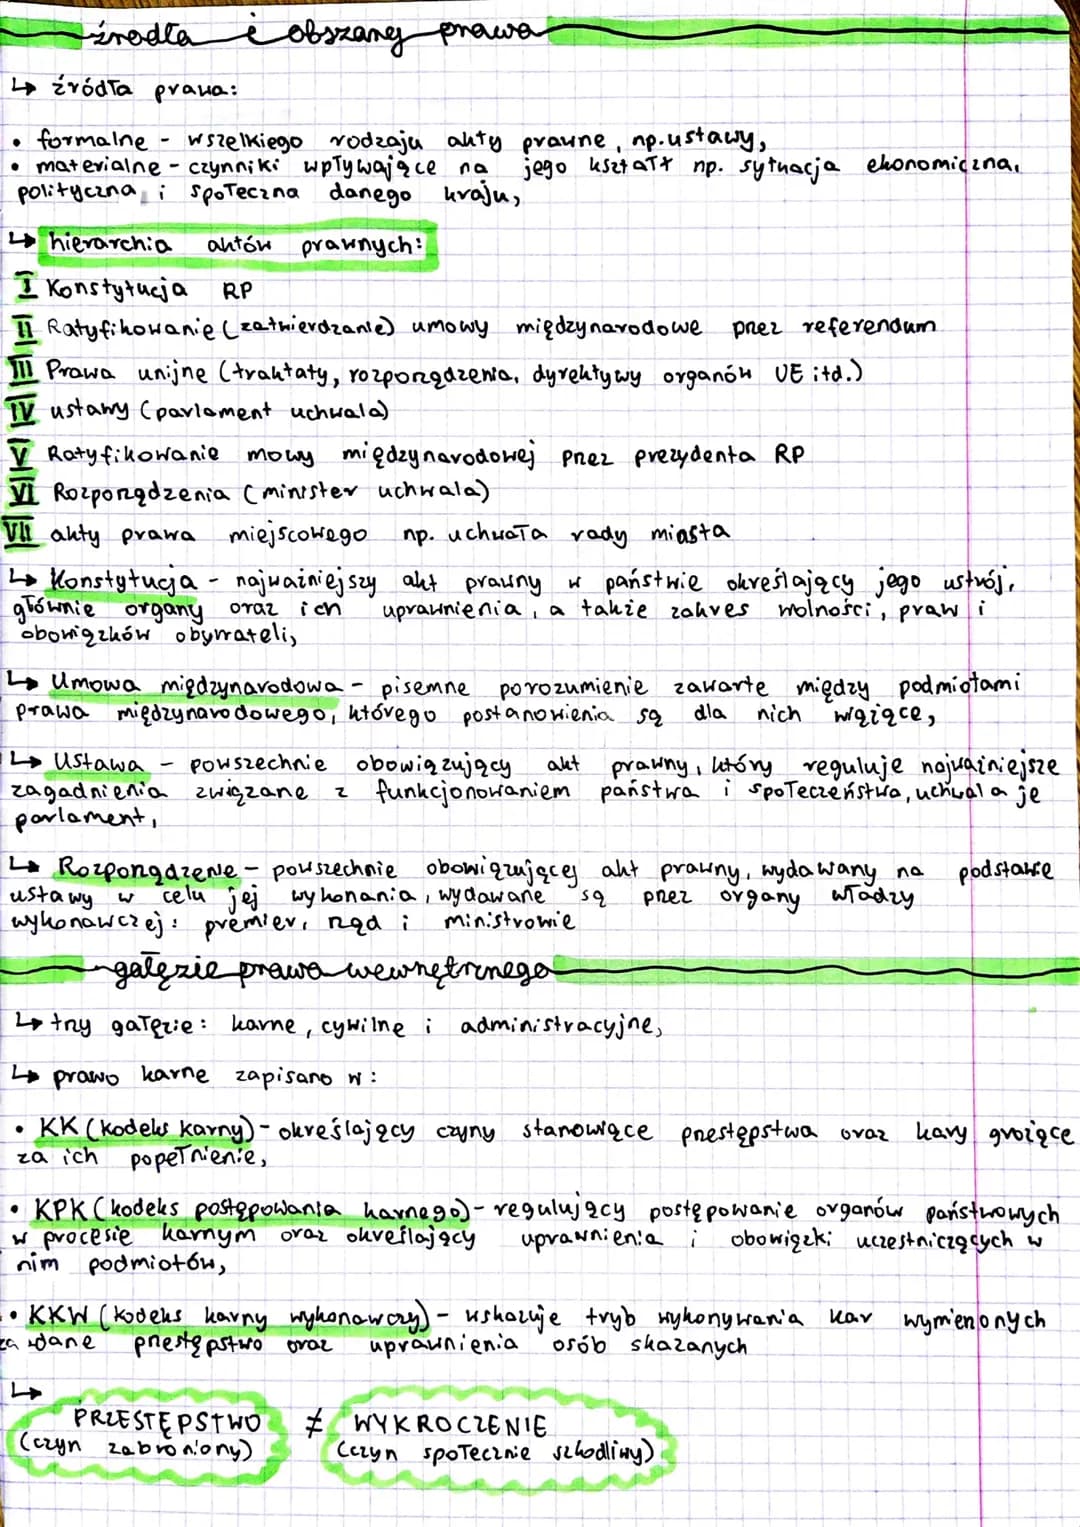 źrodła i obszary prawa
↳ źródła prawa:
• formalne - wszelkiego rodzaju akty prawne, np. ustawy,
• materialne - czynniki wpływające na jego kształt np. sytuacja ekonomiczna,
polityczna i społeczna danego kraju,
↳ hierarchia aktów prawnych:
I Konstytucja RP
II Ratyfikowanie (zatwierdzanie) umowy międzynarodowe przez referendum
III Prawa unijne (traktaty, rozporządzenia, dyrektywy organów UE itd.)
IV ustawy (parlament uchwala)
V Ratyfikowanie mowy międzynarodowej przez prezydenta RP
VI Rozporządzenia (minister uchwala)
VII akty prawa miejscowego np. uchwała rady miasta
↳ Konstytucja - najważniejszy akt prawny w państwie określający jego ustrój,
głównie organy oraz ich uprawnienia, a także zakres wolności, praw i
obowiązków obywateli,
↳ Umowa międzynarodowa - pisemne porozumienie zawarte między podmiotami
prawa międzynarodowego, którego postanowienia są dla nich wiążące,
↳ Ustawa - powszechnie obowiązujący akt prawny, który reguluje najważniejsze
zagadnienia związane z funkcjonowaniem państwa i społeczeństwa, uchwala je
parlament,
↳ Rozporządzenie - powszechnie obowiązującej akt prawny, wydawany na podstawie
ustawy w celu jej wykonania, wydawane są przez organy władzy
wykonawczej: premier, rząd i ministrowie
gałęzie prawa wewnętrznego
↳ trzy gałęzie: karne, cywilne i administracyjne,
↳ prawo karne zapisano w:
• KK (kodeks karny) - określający czyny stanowiące przestępstwa oraz kary grożące
za ich popełnienie,
• KPK (kodeks postępowania karnego) - regulujący postępowanie organów państwowych
w procesie karnym oraz określający uprawnienia i obowiązki uczestniczących w
nim podmiotów,
• KKW (kodeks karny wykonawczy) - wskazuje tryb wykonywania kar wymienonych
za dane przestępstwo oraz uprawnienia osób skazanych
↳
PRZESTĘPSTWO ≠ WYKROCZENIE
(czyn zabroniony) (czyn społecznie szkodliwy)